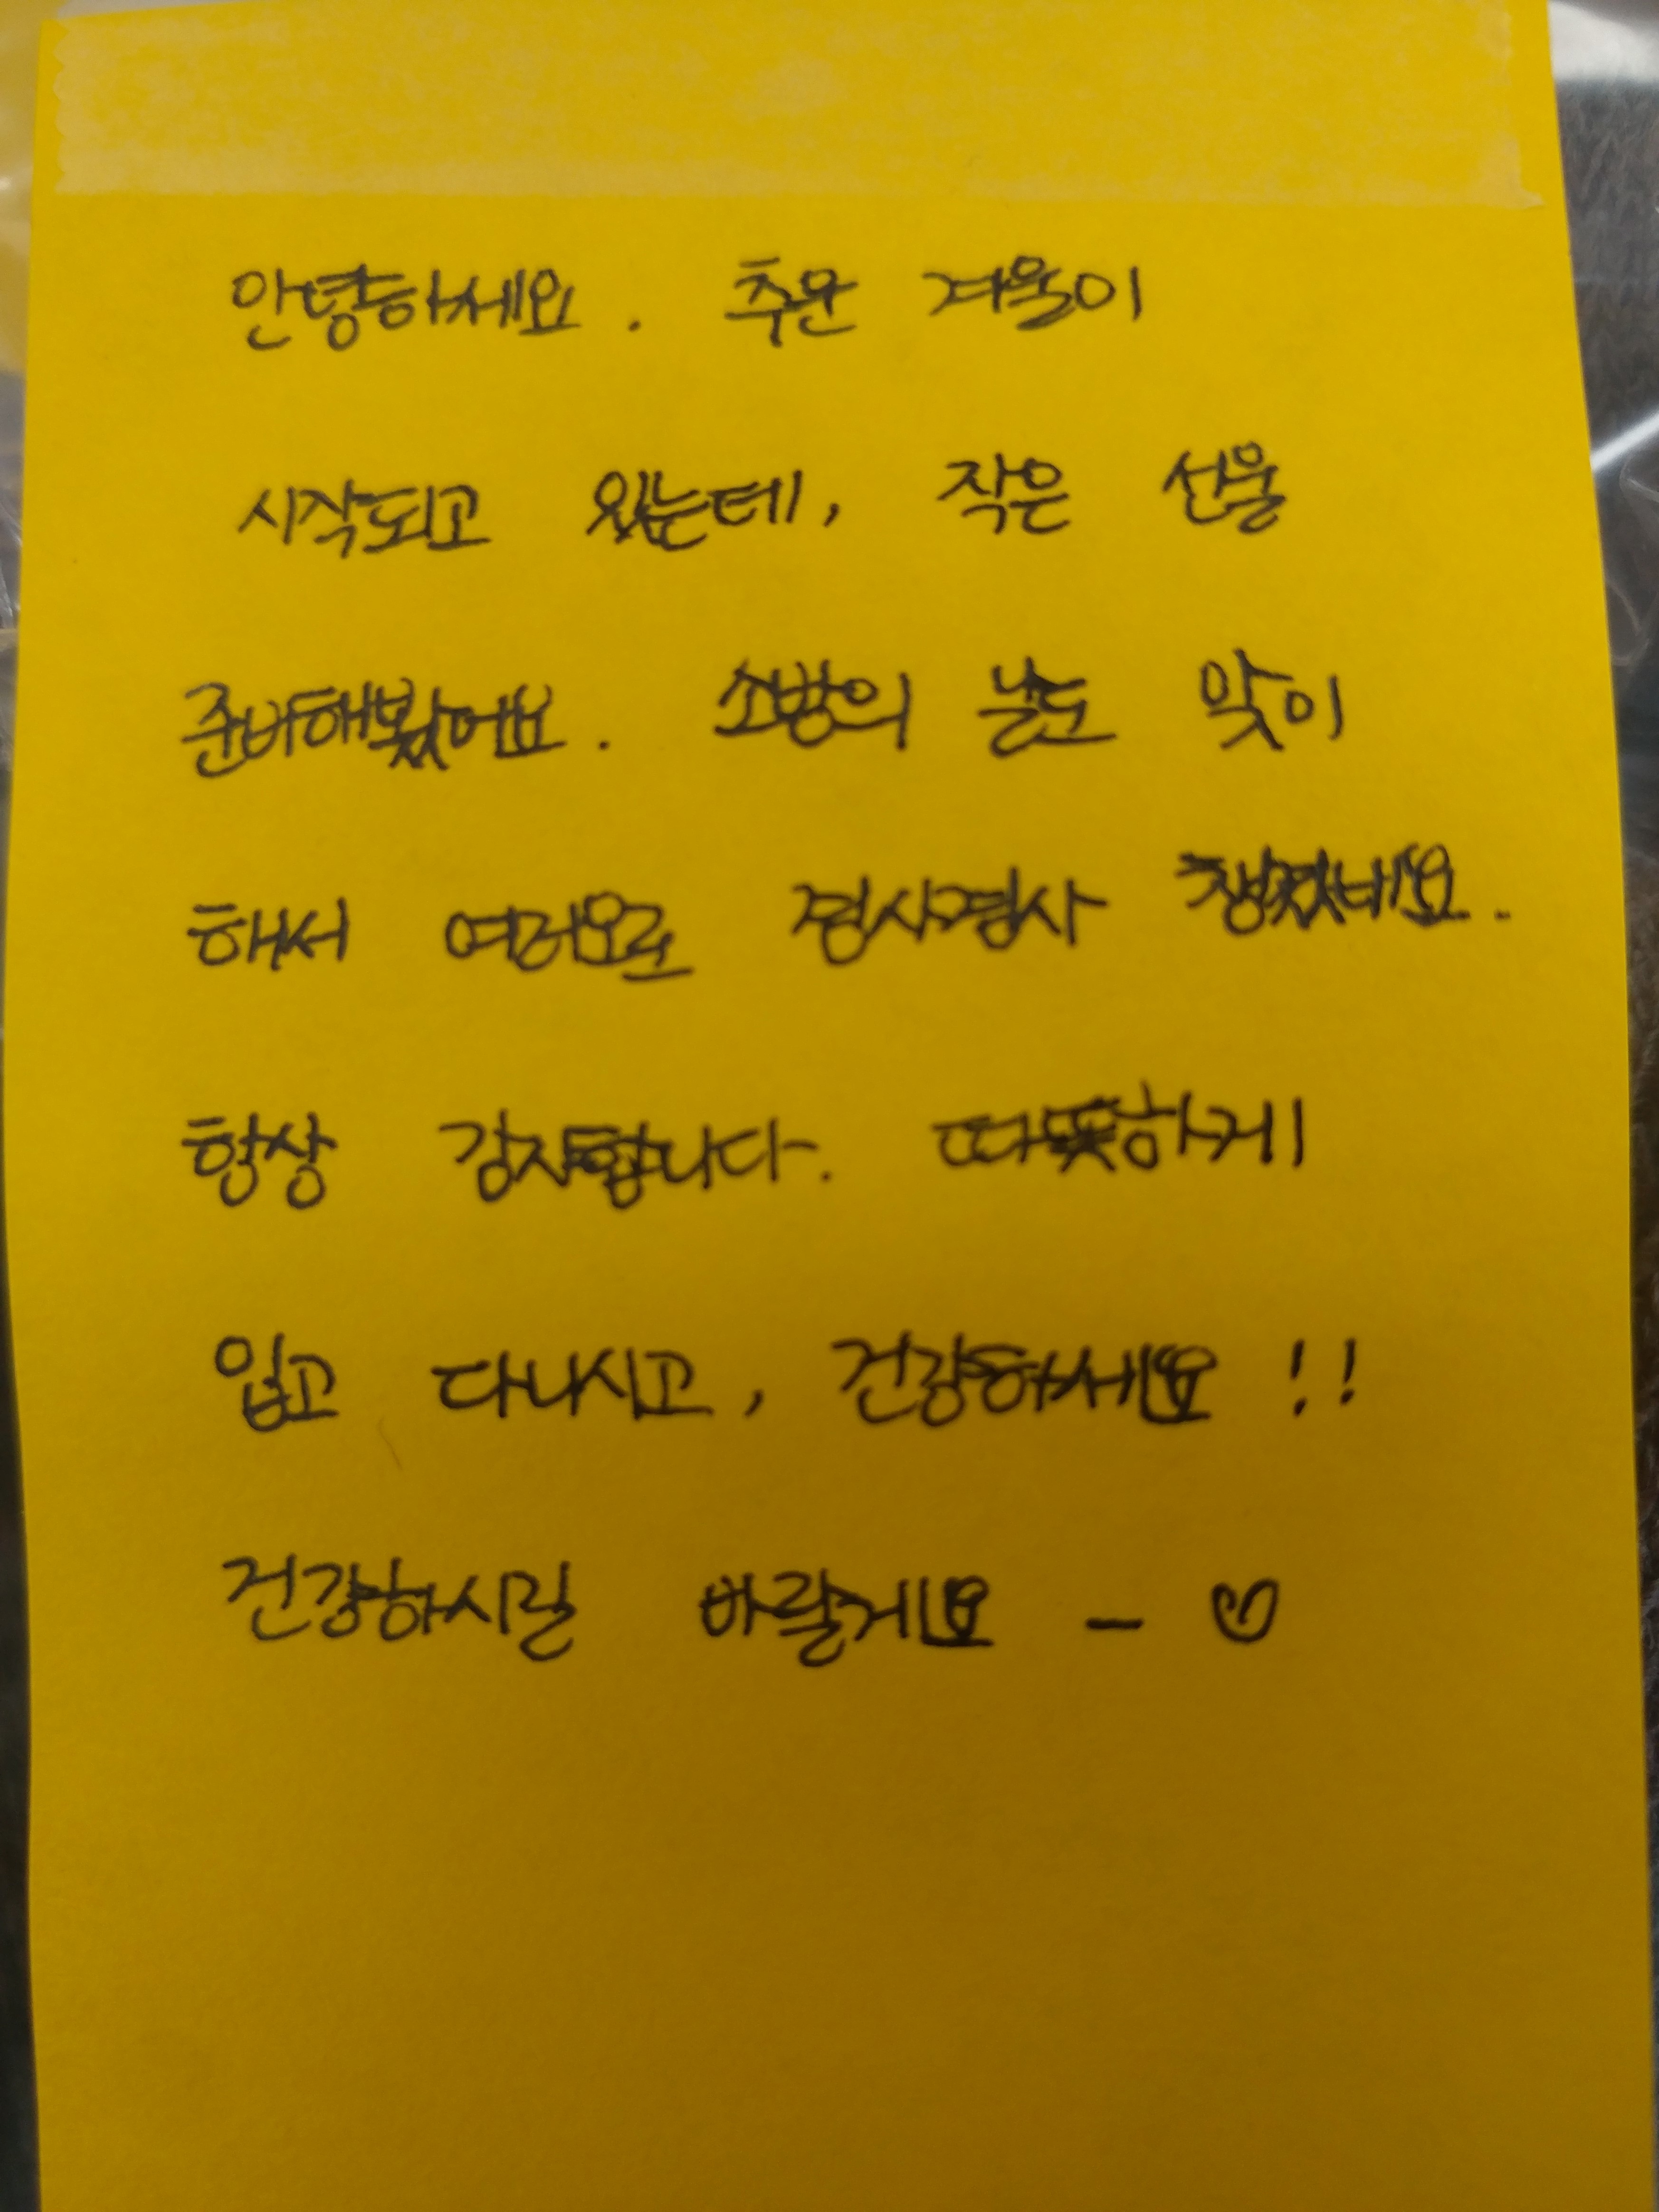 안녕하세요. 추운 겨울이
시작되고 있는데, 작은 선물
준비해봤어요. 소방의 날도 맞이
해서 여러모로 겸사겸사 챙겼네요.
항상 감사합니다. 따뜻하게
입고 다니시고, 건강하세요!!
건강하시길 바랄게요 - ♡